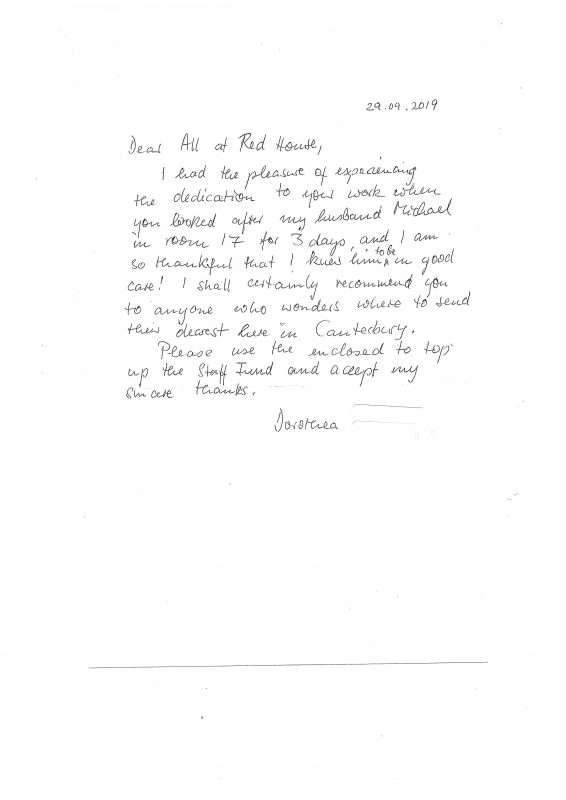 29.09.2019
Dear All at Red House,
I had the pleasure of experiencing
the dedication to your work when
you looked after my husband Michael
in room 17 for 3 days, and I am
so thankful that I knew him to be in good
care! I shall certainly recommend you
to anyone who wonders where to send
their dearest here in Canterbury.
Please use the enclosed to top
up the Staff Fund and accept my
sincere thanks.
Dorothea